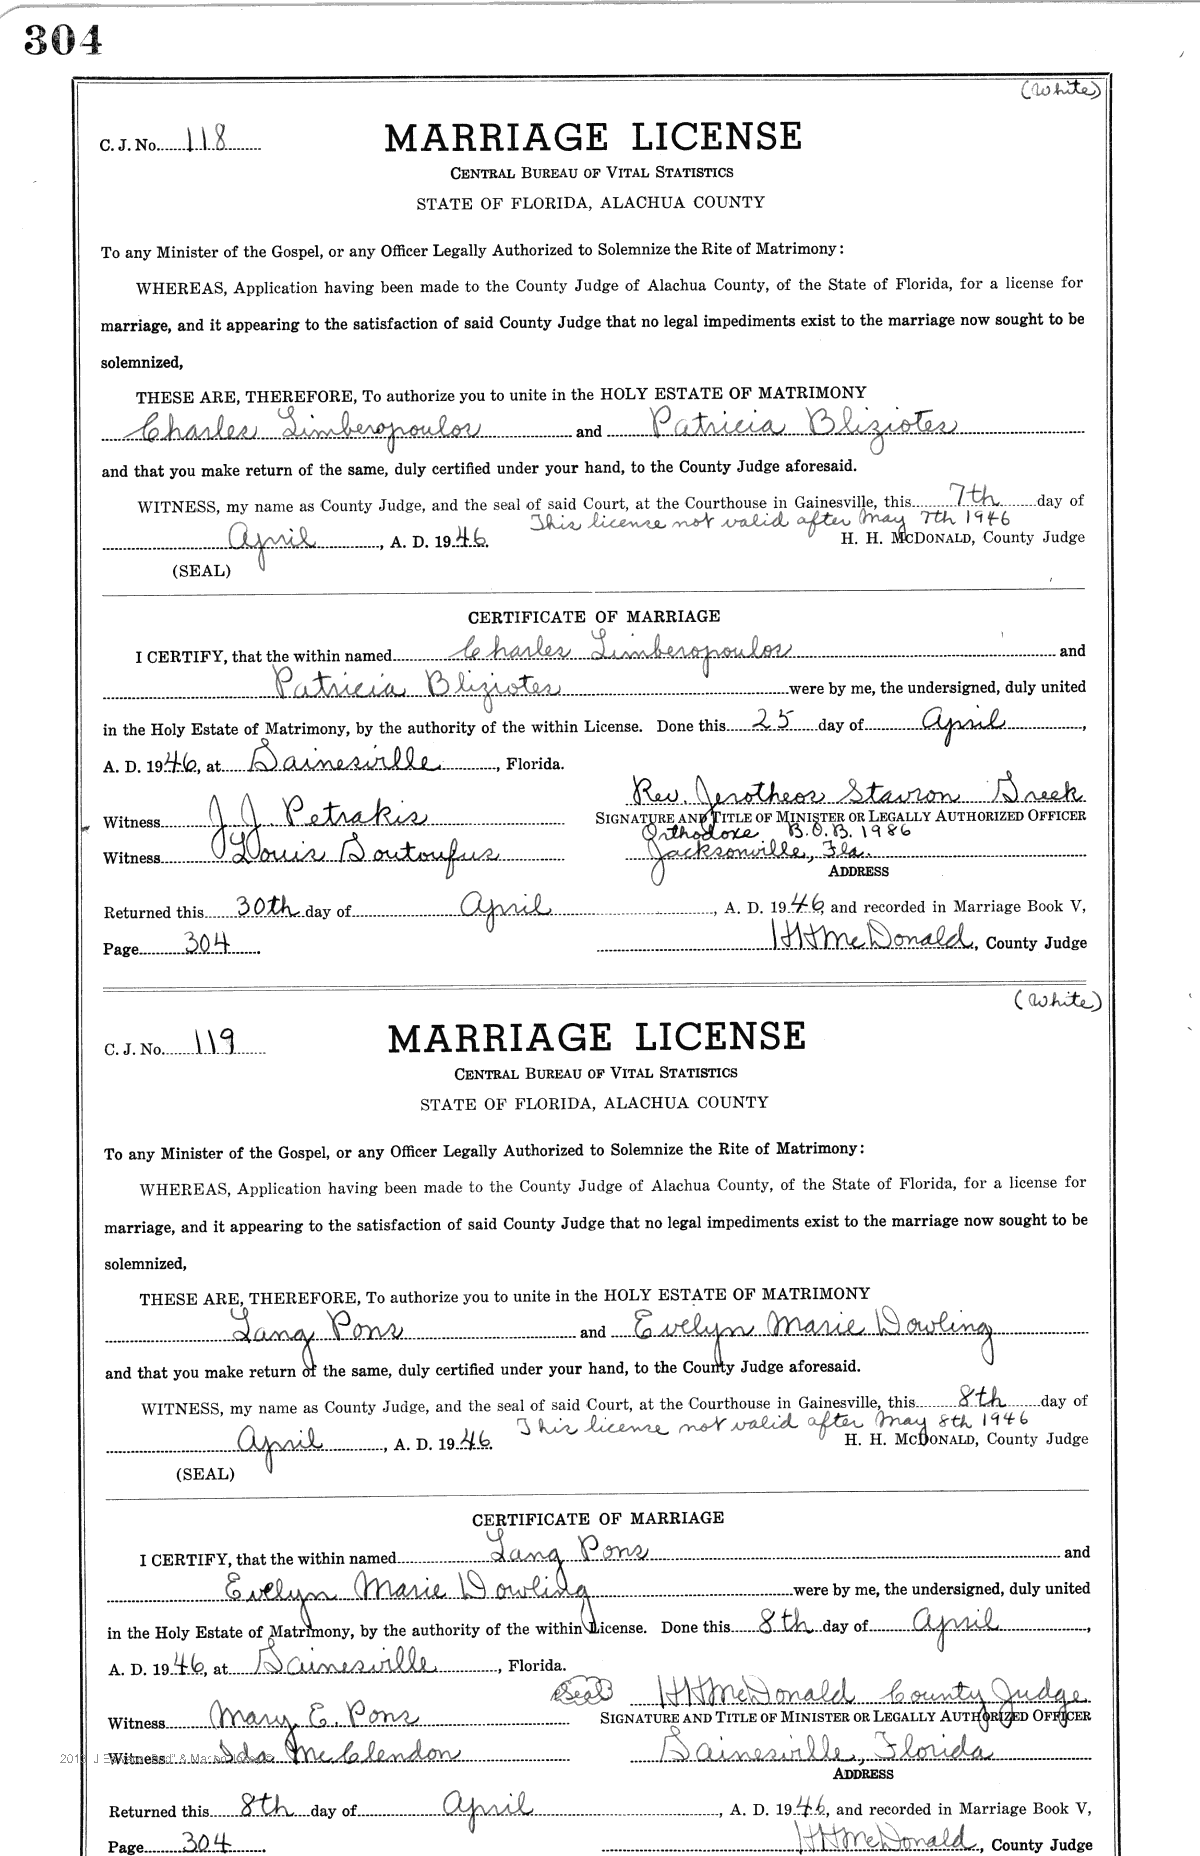 304
(White)
C. J. No. 118 MARRIAGE LICENSE
CENTRAL BUREAU OF VITAL STATISTICS
STATE OF FLORIDA, ALACHUA COUNTY
To any Minister of the Gospel, or any Officer Legally Authorized to Solemnize the Rite of Matrimony:
WHEREAS, Application having been made to the County Judge of Alachua County, of the State of Florida, for a license for
marriage, and it appearing to the satisfaction of said County Judge that no legal impediments exist to the marriage now sought to be
solemnized,
THESE ARE, THEREFORE, To authorize you to unite in the HOLY ESTATE OF MATRIMONY
Charles Limberopoulos and Patricia Bliziotes
and that you make return of the same, duly certified under your hand, to the County Judge aforesaid.
WITNESS, my name as County Judge, and the seal of said Court, at the Courthouse in Gainesville, this 7th day of
This license not valid after May 7th 1946
April, A. D. 1946. H. H. MCDONALD, County Judge
(SEAL)
CERTIFICATE OF MARRIAGE
I CERTIFY, that the within named Charles Limberopoulos and
Patricia Bliziotes were by me, the undersigned, duly united
in the Holy Estate of Matrimony, by the authority of the within License. Done this 25 day of April,
A. D. 1946, at Gainesville, Florida.
Rev. Jerotheos Stavron Greek
Witness J J Petrakis SIGNATURE AND TITLE OF MINISTER OR LEGALLY AUTHORIZED OFFICER
Orthodoxe B.O.B. 1986
Witness Louis Goutoufus Jacksonville, Fla.
ADDRESS
Returned this 30th day of April, A. D. 1946, and recorded in Marriage Book V,
Page 304. HHMcDonald, County Judge
(White)
C. J. No. 119 MARRIAGE LICENSE
CENTRAL BUREAU OF VITAL STATISTICS
STATE OF FLORIDA, ALACHUA COUNTY
To any Minister of the Gospel, or any Officer Legally Authorized to Solemnize the Rite of Matrimony:
WHEREAS, Application having been made to the County Judge of Alachua County, of the State of Florida, for a license for
marriage, and it appearing to the satisfaction of said County Judge that no legal impediments exist to the marriage now sought to be
solemnized,
THESE ARE, THEREFORE, To authorize you to unite in the HOLY ESTATE OF MATRIMONY
Lang Pons and Evelyn Marie Dowling
and that you make return of the same, duly certified under your hand, to the County Judge aforesaid.
WITNESS, my name as County Judge, and the seal of said Court, at the Courthouse in Gainesville, this 8th day of
This license not valid after May 8th 1946
April, A. D. 1946. H. H. MCDONALD, County Judge
(SEAL)
CERTIFICATE OF MARRIAGE
I CERTIFY, that the within named Lang Pons and
Evelyn Marie Dowling were by me, the undersigned, duly united
in the Holy Estate of Matrimony, by the authority of the within License. Done this 8th day of April,
A. D. 1946, at Gainesville, Florida.
Seal HHMcDonald County Judge
Witness Mary E. Pons SIGNATURE AND TITLE OF MINISTER OR LEGALLY AUTHORIZED OFFICER
Witness Ida McClendon Gainesville, Florida
ADDRESS
Returned this 8th day of April, A. D. 1946, and recorded in Marriage Book V,
Page 304. HHMcDonald, County Judge